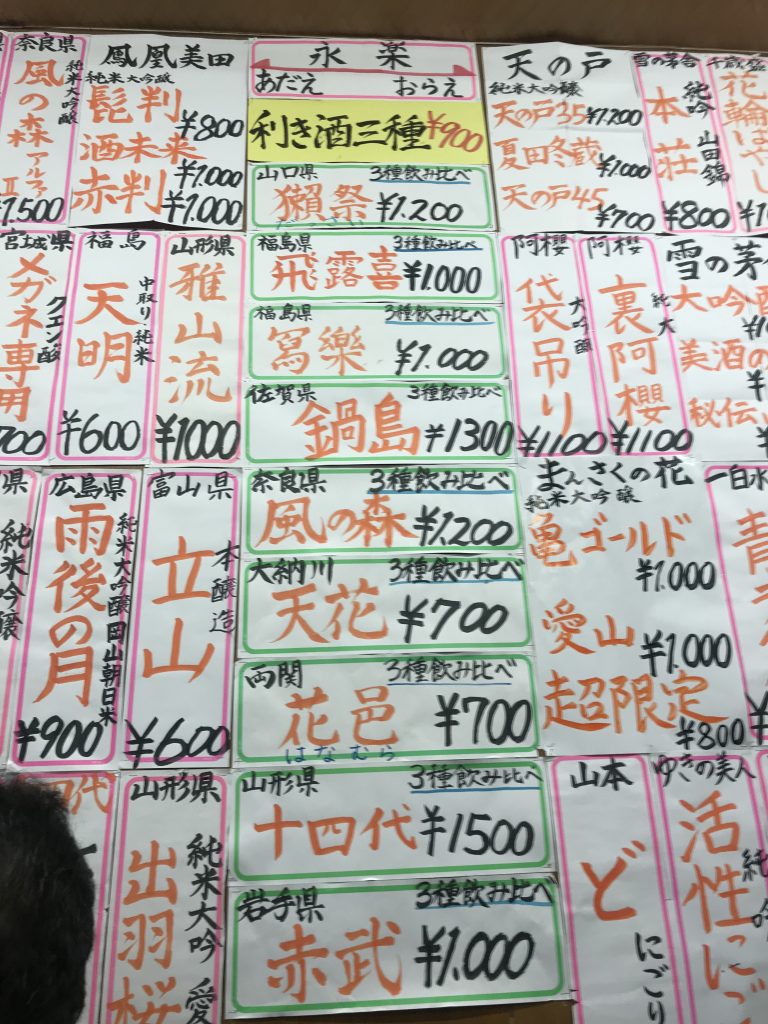 奈良県
純米大吟醸
風の森
アルファ
¥1.500
鳳凰美田
純米大吟醸
髭判
¥800
酒未来
¥1.000
赤判
¥1.000
永楽
あだえ おらえ
利き酒三種¥900
山口県 3種飲み比べ
獺祭 ¥1.200
だっさい
福島県 3種飲み比べ
飛露喜 ¥1.000
福島県 3種飲み比べ
寫樂 ¥1.000
佐賀県 3種飲み比べ
鍋島 ¥1300
奈良県 3種飲み比べ
風の森 ¥1.200
大納川 3種飲み比べ
天花 ¥700
両関 3種飲み比べ
花邑 ¥700
はなむら
山形県 3種飲み比べ
十四代 ¥1500
岩手県 3種飲み比べ
赤武 ¥1.000
天の戸
純米大吟醸
天の戸35 ¥1.200
夏田冬蔵
¥1.000
天の戸45
¥700
雪の茅舎
純吟
山田錦
本荘
¥800
千歳盛
花輪ばやし
宮城県
メガネ専用
クエン酸
700
福島
中取り・純米
天明
¥600
山形県
雅山流
¥1000
阿櫻
大吟醸
袋吊り
¥1100
阿櫻
純大
裏阿櫻
¥1100
雪の茅
大吟醸
美酒の
秘伝
県
純米吟醸
広島県
純米大吟醸 岡山朝日米
雨後の月
¥900
富山県
本醸造
立山
¥600
まんさくの花
純米大吟醸
亀ゴールド
¥1.000
愛山
¥1.000
超限定
¥800
一白水
十四代
山形県
純米大吟 愛
出羽桜
山本
ど
にごり
ゆきの美人
活性にご
純